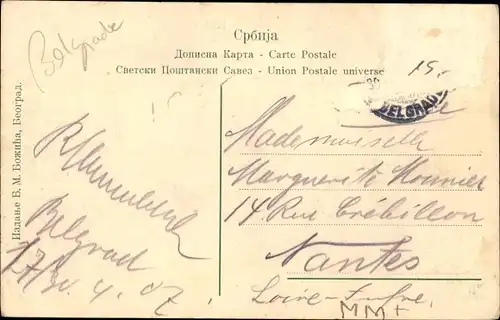 Belgrade
Србија
Дописна Карта - Carte Postale
Светски Поштански Савез - Union Postale universe
15.-
BELGRADE
Mademoiselle
Marguerite Mounier
14 Rue Crébillon
Nantes
Loire-Infre.
MM+
Belgrad
17/30. 4. 07
Издање В. М. Божића, Београд.